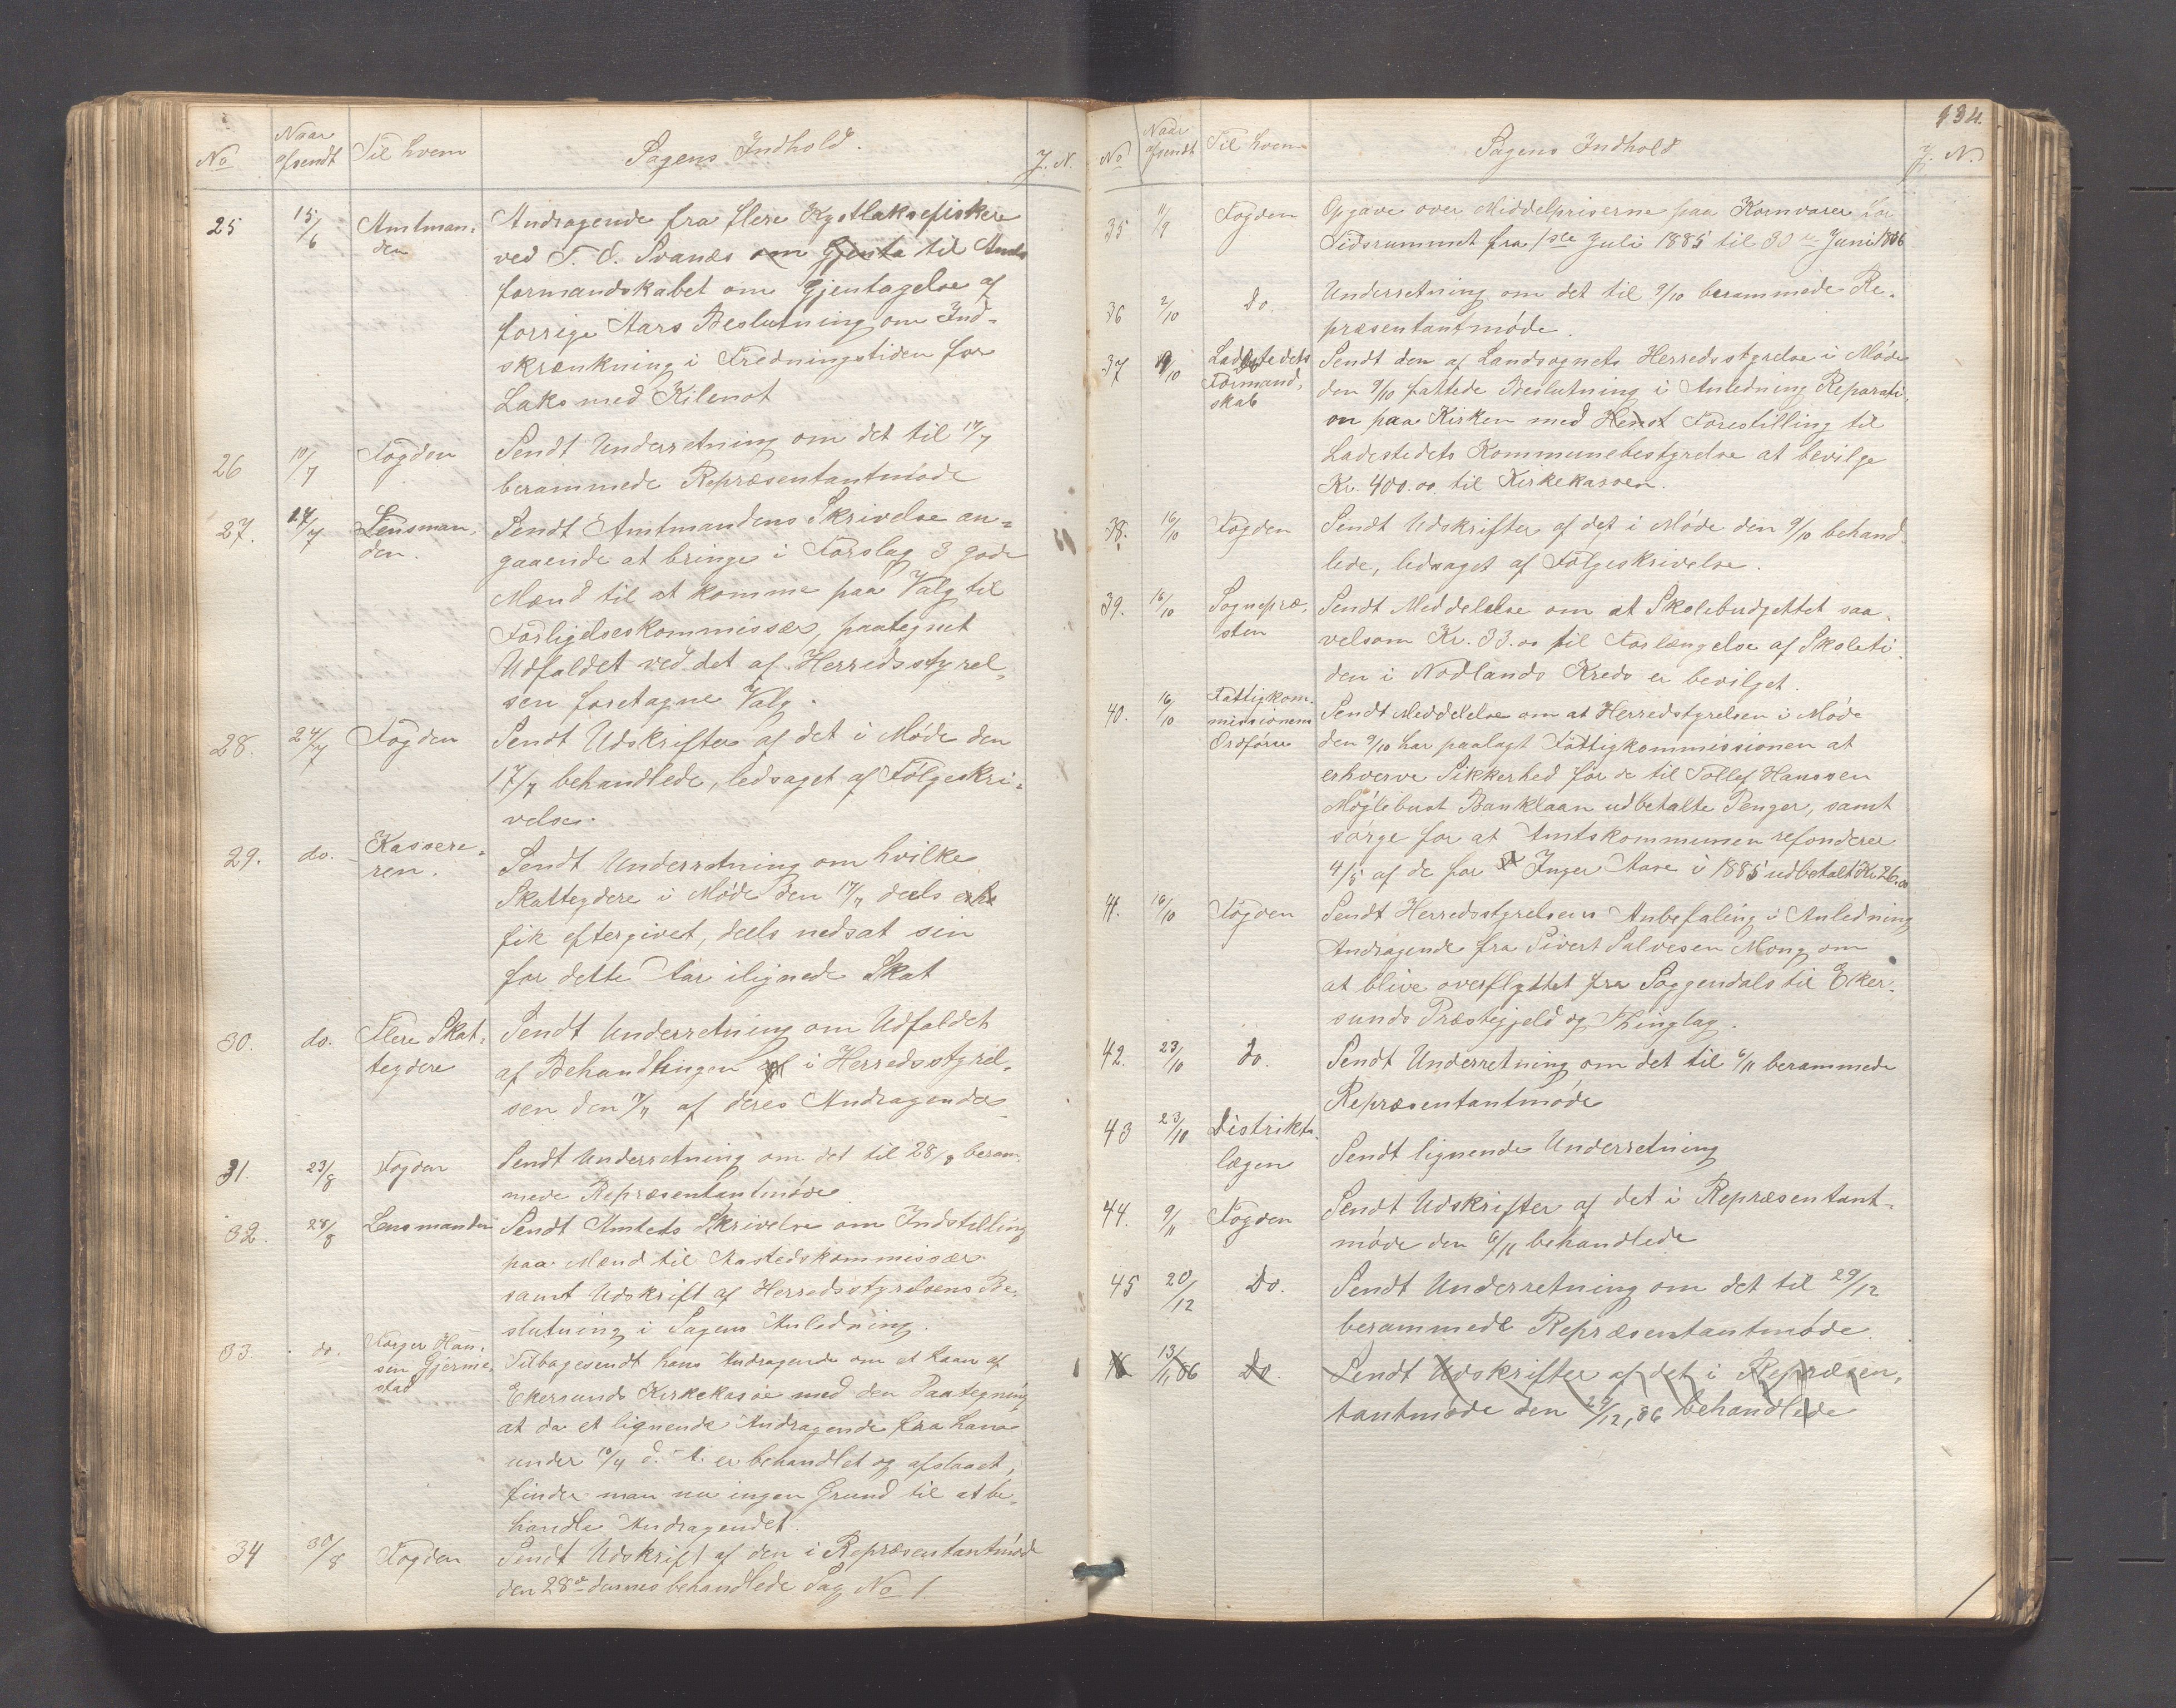 No
Naar afsendt
Til hvem
Sagens Indhold.
J. N.
25 15/6 Amtman- Andragende fra flere Kystlaksefiskere
den ved T. C. Svanæs om Gjenta til Amts
formandskabet om Gjentagelse af
forrige Aars Beslutning om Ind-
skrænkning i Fredningstiden for
Laks med Kilenot
26 10/7 Fogden Sendt Underretning om det til 17/7
berammede Repræsentantmøde
27. 17/7 Lensman- Sendt Amtmandens Skrivelse an-
den. gaaende at bringe i Forslag 3 gode
Mænd til at komme paa Valg til
Forligelseskommissær, paategnet
Udfaldet ved det af Herredsstyrel-
sen foretagne Valg.
28. 24/7 Fogden Sendt Udskrifter af det i Møde den
17/7 behandlede, ledsaget af Følgeskri-
velse.
29. do. Kassere- Sendt Underretning om hvilke
ren. Skatteydere i Møde den 17/7 deels
fik eftergivet, deels nedsat sin
for dette Aar ilignede Skat
30. do. Flere Skat- Sendt Underretning om Udfaldet
teydere af Behandlingen i Herredsstyrel-
sen den 17/7 af deres Andragender
31. 23/8 Fogden Sendt Underretning om det til 28/8 beram-
mede Repræsentantmøde
32. 28/8 Lensmanden Sendt Amtets Skrivelse om Indstilling
paa Mænd til Aastedskommissær
samt Udskrift af Herredsstyrelsens Be-
slutning i Sagens Anledning.
33. do. Torger Han- Tilbagesendt hans Andragende om et Laan af
sen Gjerme- Ekersunds Kirkekasse med den Paategning
stad at da et lignende Andragende fra ham
under 10/4 d. A. er behandlet og afslaaet,
finder man nu ingen Grund til at be-
handle Andragendet.
34 30/8 Fogden Sendt Udskrift af den i Repræsentantmøde
den 28de dennes behandlede Sag No 1.
134.
No
Naar afsendt
Til hvem
Sagens Indhold
J. N.
35 11/9 Fogden Opgave over Middelpriserne paa Kornvarer for
Tidsrummet fra 1ste Juli 1885 til 30te Juni 1886
36 2/10 Do. Underretning om det til 9/10 berammede Re-
præsentantmøde.
37 9/10 Ladestedets Sendt den af Landsognets Herredsstyrelse i Møde
Formand- den 9/10 fattede Beslutning i Anledning Reparati-
skab on paa Kirken med Henst Forestilling til
Ladestedets Kommunebestyrelse at bevilge
Kr. 400.00 til Kirkekassen.
38. 16/10 Fogden Sendt Udskrifter af det i Møde den 9/10 behand-
lede, ledsaget af Følgeskrivelse.
39. 16/10 Sognepræ- Sendt Meddelelse om at Skolebudgettet saa-
sten velsom Kr. 33.00 til Forlængelse af Skoleti-
den i Nodlands Kreds er bevilget.
40. 16/10 Fattigkom- Sendt Meddelelse om at Herredstyrelsen i Møde
missionens den 9/10 har paalagt Fattigkommissionen at
Ordfører erhverve Sikkerhed for de til Tollef Hanssen
Møglebust Banklaan udbetalte Penger, samt
sørge for at Amtskommunen refonderer
4/5 af de for Inger Aase i 1885 udbetalt Kr. 26.00
41. 16/10 Fogden Sendt Herredsstyrelsens Anbefaling i Anledning
Andragende fra Sivert Salvesen Mong om
at blive overflyttet fra Soggendals til Eker-
sunds Præstegjeld og Thinglag.
42. 23/10 do. Sendt Underretning om det til 6/11 berammede
Repræsentantmøde
43 23/10 Distrikts-
lægen Sendt lignende Underretning
44. 9/11 Fogden Sendt Udskrifter af det i Repræsentant-
møde den 6/11 behandlede
45 20/12 Do. Sendt Underretning om det til 29/12
berammede Repræsentantmøde.
46 13/1, 86 Do. Sendt Udskrifter af det i Repræsen-
tantmøde den 29/12, 86 behandlede